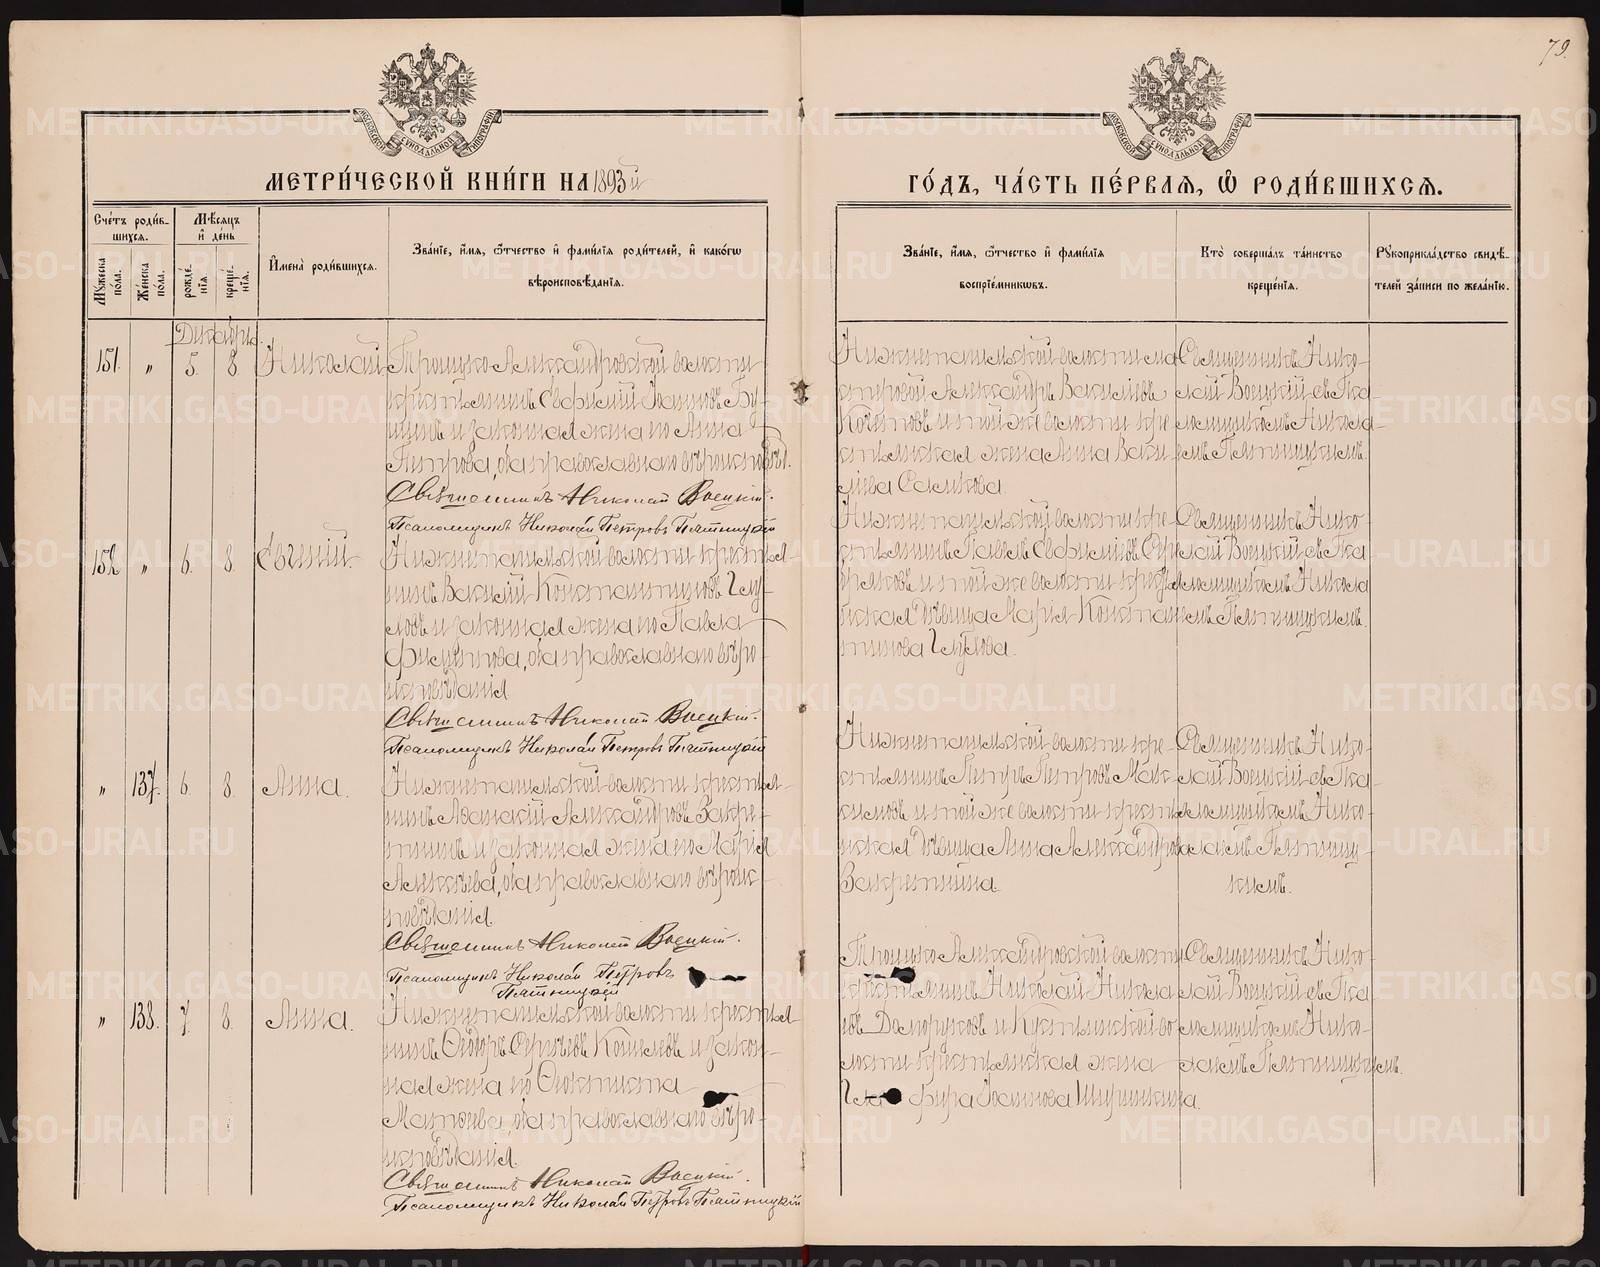 79.
МЕТРИ́ЧЕСКОЙ КНИ́ГИ НА 1893й
ГО́ДЪ, ЧА́СТЬ ПЕ́РВАѦ, Ѿ РОДИ́ВШИХСѦ.
Сче́тъ роди́в-
шихся.
Мѣ́сяцъ
и҆ де́нь
И҆мена̀ роди́вшихся.
Зва́нїе, и҆́мя, ѻ҆́тчество и҆ фами́лїя роди́телей, и҆ како́гѡ
вѣроисповѣ́данїя.
Му́жеска по́ла.
Же́нска по́ла.
рожде́-
нїя.
креще́-
нїя.
Зва́нїе, и҆́мя, ѻ҆́тчество и҆ фами́лїя
воспрїе́мникѡвъ.
Кто̀ соверша́лъ та́инство
креще́нїя.
Рукоприкла́дство свидѣ́-
телей за́писи по жела́нїю.
Декабрь.
151. " 5. 8. Николай
Троицко-Александровской волости
крестьянинъ Евфимій Іоанновъ Бу-
и законная жена его Анна
Петрова, оба православнаго вѣроисповѣд.
Священникъ Николай Воецкій.
Псаломщикъ Николай Петровъ Пятницкій
Нижнетагильской волости ма-
стеровой Александръ Васильевъ
и той же волости кре-
стьянская жена Анна Васи-
льева
Священникъ Нико-
лай Воецкій съ Пса-
ломщикомъ Никола-
емъ Пятницкимъ.
152 " 6. 8. Евгеній.
Нижнетагильской волости крестья-
нинъ Василій Константиновъ Глу-
ховъ и законная жена его Павла
Филиппова, оба православнаго вѣро-
исповѣданія
Священникъ Николай Воецкій.
Псаломщикъ Николай Петровъ Пятницкій
Нижнетагильской волости кре-
стьянинъ Павелъ Евфиміевъ Сере-
бряковъ и той же волости кресть
янская дѣвица Марія Констан
тинова Глухова.
Священникъ Нико-
лай Воецкій съ Пса-
ломщикомъ Никола
емъ Пятницкимъ.
" 137. 6. 8. Анна.
Нижнетагильской волости крестья-
нинъ Александровъ Закре-
пинъ и законная жена его Марія
Алексѣева, оба православнаго вѣроис-
повѣданія
Священникъ Николай Воецкій.
Псаломщикъ Николай Петровъ
Пятницкій
Нижнетагильской волости кре-
стьянинъ Петръ Петровъ Мак-
симовъ и той же волости кресть
янская дѣвица Анна Александрова
Закрепина.
Священникъ Нико-
лай Воецкій съ Пса-
ломщикомъ Нико-
лаемъ Пятниц-
кимъ.
" 138. 7. 8. Анна.
Нижнетагильской волости крестья-
нинъ Ѳеодоръ Сергѣевъ Кошелевъ и закон-
ная жена его Ѳеоктиста
Матѳеева, оба православнаго вѣро-
исповѣданія.
Священникъ Николай Воецкій.
Псаломщикъ Николай Петровъ Пятницкій
Троицко-Александровской волости
крестьянинъ Николай Никола
евъ Долоруковъ и во-
лости крестьянская жена
Гла фира Іоаннова Ширинкина.
Священникъ Нико-
лай Воецкій съ Пса
ломщикомъ Нико-
лаемъ Пятницкимъ.
METRIKI.GASO-URAL.RU